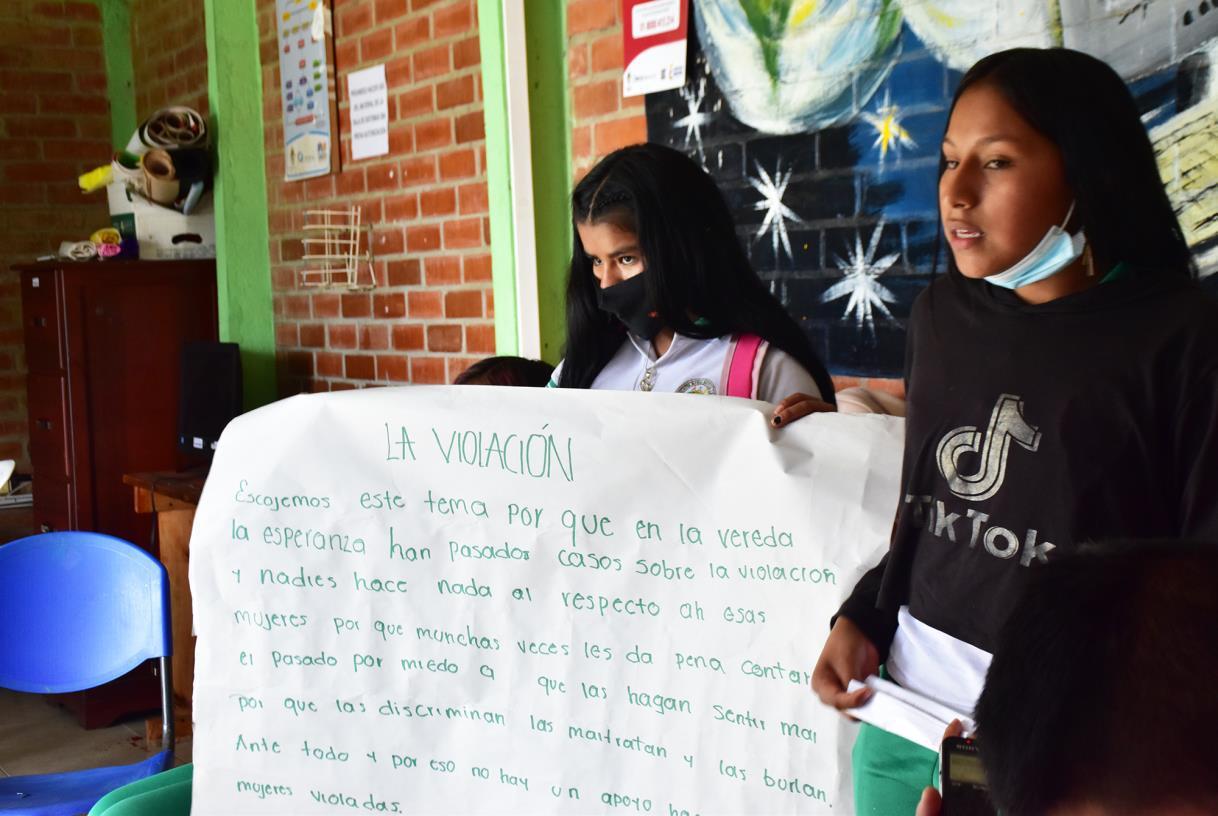 PROHIBIDO HACER USO
DEL MATERIAL DE LA
SALA DE SISTEMAS SIN
PREVIA AUTORIZACIÓN
LA VIOLACIÓN
Escojemos este tema por que en la vereda
la esperanza han pasados casos sobre la violacion
y nadies hace nada al respecto ah esas
mujeres por que munchas veces les da pena contar
el pasado por miedo a que las hagan sentir mal
por que las discriminan las maltratan y las burlan.
Ante todo y por eso no hay un apoyo ha
mujeres violadas.
TikTok